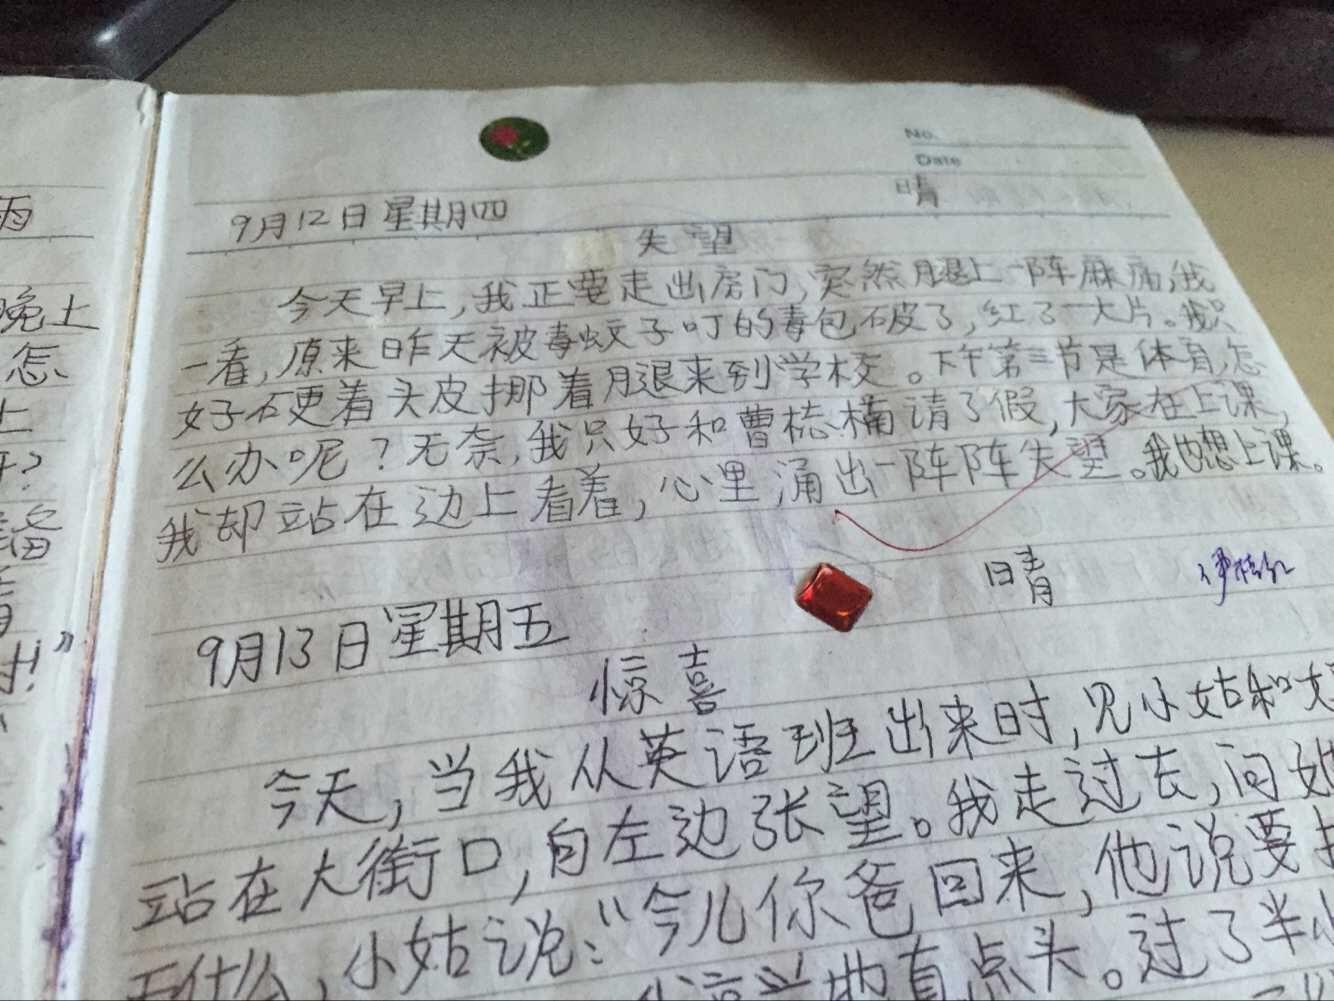 雨
晚上
怎
上
开?
备
才!”
No.
Date
9月12日星期四
晴
失望
今天早上,我正要走出房门,突然腿上一阵麻痛,我
一看,原来昨天被毒蚊子叮的毒包破了,红了一大片。我只
好硬着头皮挪着腿来到学校。下午第三节是体育,怎
么办呢?无奈,我只好和曹楠请了假,大家在上课,
我却站在边上看着,心里涌出一阵阵失望。我也想上课。
9月13日星期五
晴
惊喜
今天,当我从英语班出来时,见小姑和
站在大街口,向左边张望。我走过去,问她
干什么,小姑说:“今儿你爸回来,他说要
地直点头。过了半小